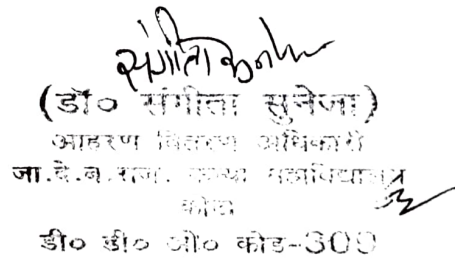 संगीता
(डॉ० संगीता सुनेजा)
आहरण वितरण अधिकारी
जा.दे.ब. राज. कन्या महाविद्यालय
कोटा
डी० डी० ओ० कोड-300